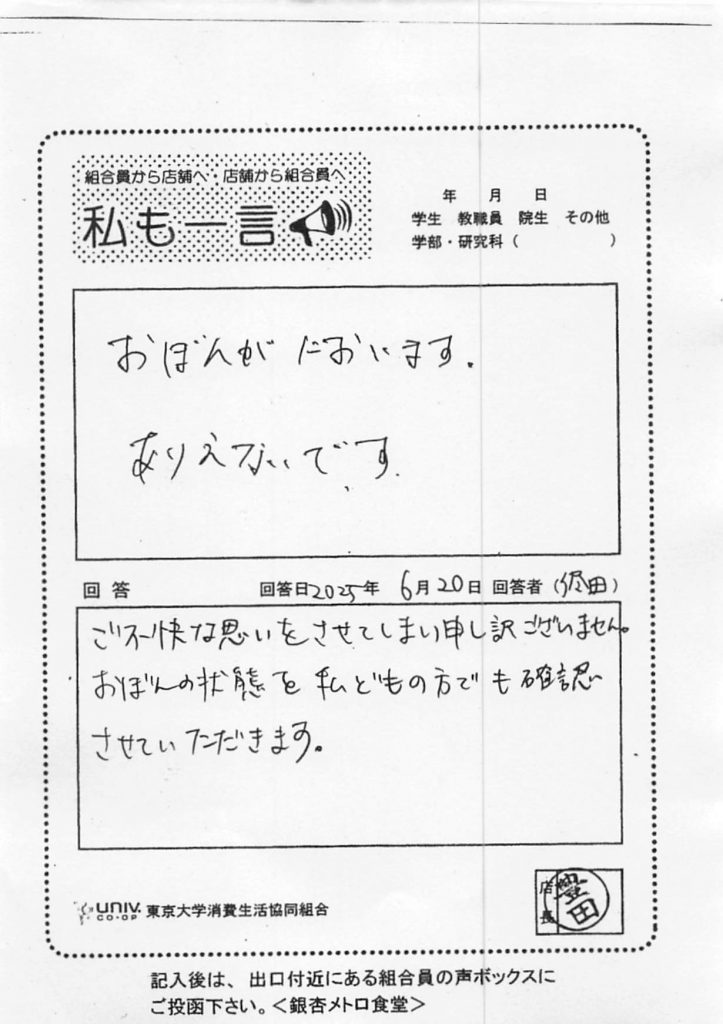 組合員から店舗へ・店舗から組合員へ
私も一言
年 月 日
学生 教職員 院生 その他
学部・研究科( )
おぼんが においます.
ありえないです.
回答 回答日2025年 6月20日 回答者( 田)
ご不快な思いをさせてしまい申し訳ございません。
おぼんの状態を私どもの方でも確認
させていただきます。
UNIV. CO-OP 東京大学消費生活協同組合
店長 豊田
記入後は、出口付近にある組合員の声ボックスに
ご投函下さい。<銀杏メトロ食堂>